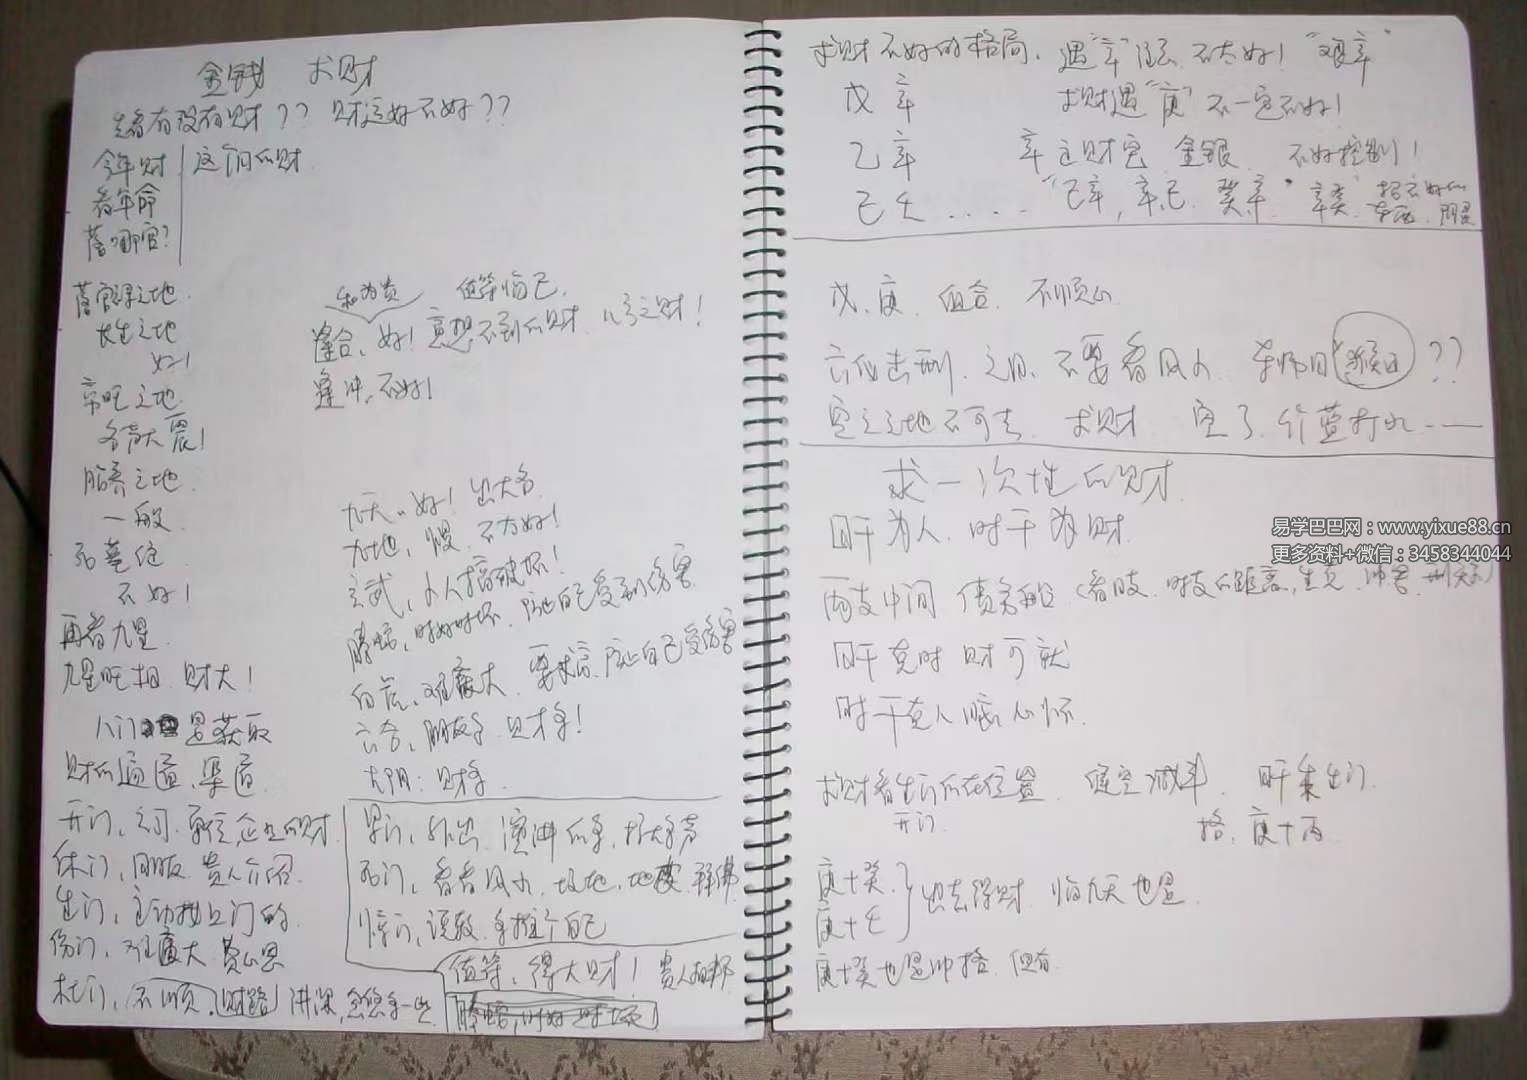 金钱 求财
先看有没有财?? 财运好不好??
今年财
看年命
落哪宫?
这个月的财
落官禄之地
长生之地
好!
帝旺之地
名声大震!
胎养之地
一般
死墓绝
不好!
再看九星
九星旺相 财大!
八门 是获取
财的通道、渠道
开门、公司、单位企业的财
休门、同事 贵人介绍
生门、主动找上门的
伤门、难度大 费心思
杜门、不顺、财路
和为贵 值符临己
逢合、好! 意想不到的财
逢冲、不好!
九天、好! 出大名
九地、慢、不太好!
玄武、小人搞破坏!
螣蛇、时好时坏、防止自己受到伤害
白虎、难度大、防止自己受伤害
六合、朋友多、财多!
太阴:财多
景门、外出、演讲的多、
死门、看看风水、坟地、地皮
惊门、说教、多推介自己
值符、得大财! 贵人相帮
求财不好的格局、遇“辛”注意、不太好! “艰辛”
戊 辛
求财遇“庚”不一定不好!
乙 辛
辛主财宝 金银 不好控制!
己 壬 .....
“己辛,辛己、癸辛”“辛癸”
戊、庚、组合、不顺心
六仪击刑、之日、不要看风水、 ??
空亡之地不可去、求财、空了、竹篮打水——
求一次性的财
日干为人、时干为财
两支中间
(看日支、时支的距离,生克、冲害、刑
日干克时 财可求
时干克人
求财看生门所在位置、逢空减半、日干乘生门
开门
格、庚+丙
庚+癸
庚+壬
出去得财 临九天也是
庚+癸也是冲格、但有
易学巴巴网:www.yixue88.cn
更多资料+微信:3458344044